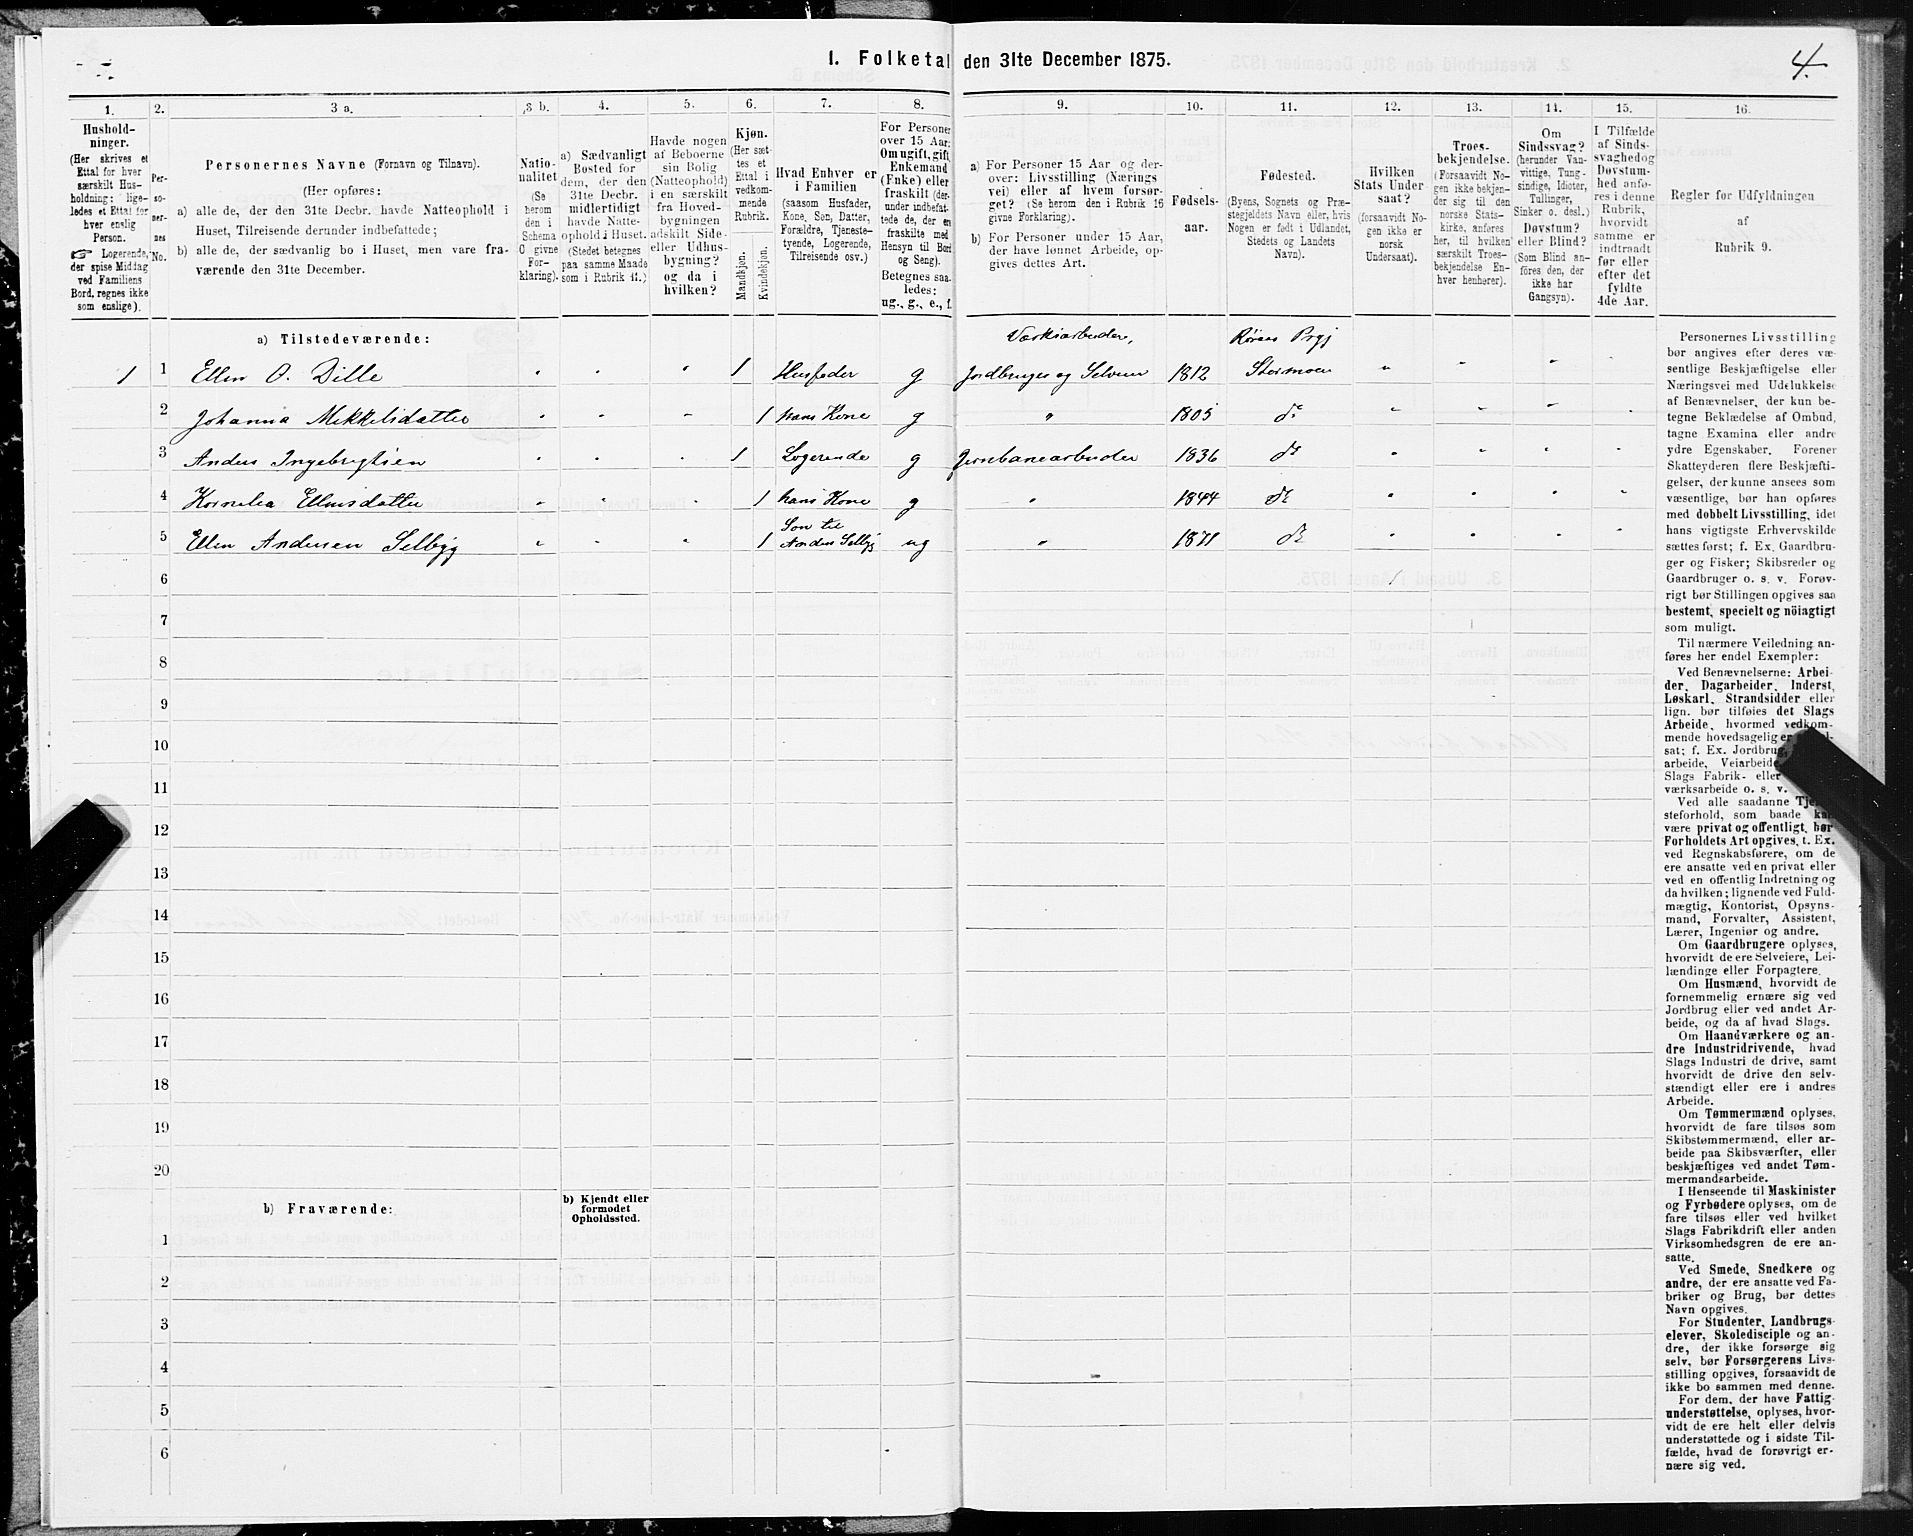 1. Folketal den 31te December 1875.
4.
1. 2. 3 a. 3 b. 4. 5. 6. 7. 8. 9. 10. 11. 12. 13. 14. 15. 16.
Hushold-
ninger.
(Her skrives et
Ettal for hver
særskilt Hus-
holdning; lige-
ledes et Ettal for
hver enslig
Person.
☞ Logerende,
der spise Middag
ved Familiens
Bord, regnes ikke
som enslige).
Per-
so-
ner-
nes
No.
Personernes Navne (Fornavn og Tilnavn).
(Her opføres:
a) alle de, der den 31te Decbr. havde Natteophold i
Huset, Tilreisende derunder indbefattede;
b) alle de, der sædvanlig bo i Huset, men vare fra-
værende den 31te December.
Natio-
nalitet
(Se
herom
den i
Schema
C givne
For-
klaring).
a) Sædvanligt
Bosted for
dem, der den
31te Decbr.
midlertidigt
havde Natte-
ophold i Huset.
(Stedet betegnes
paa samme Maade
som i Rubrik 11.)
Havde nogen
af Beboerne
sin Bolig
(Natteophold)
i en særskilt
fra Hoved-
bygningen
adskilt Side-
eller Udhus-
bygning?
og da i
hvilken?
Kjøn.
(Her sæt-
tes et
Ettal i
vedkom-
mende
Rubrik.
Mandkjøn.
Kvindekjøn.
Hvad Enhver er
i Familien
(saasom Husfader,
Kone, Søn, Datter,
Forældre, Tjeneste-
tyende, Logerende,
Tilreisende osv.)
For Personer
over 15 Aar:
Om ugift, gift,
Enkemand
(Enke) eller
fraskilt (der-
under indbefat-
tede de, der er
fraskilte med
Hensyn til Bord
og Seng).
Betegnes saa-
ledes:
ug., g., e., f.
a) For Personer 15 Aar og der-
over: Livsstilling (Nærings
vei) eller af hvem forsør-
get? (Se herom den i Rubrik 16
givne Forklaring).
b) For Personer under 15 Aar,
der have lønnet Arbeide, op-
gives dettes Art.
Fødsels-
aar.
Fødested.
(Byens, Sognets og Præ-
stegjeldets Navn eller, hvis
Nogen er født i Udlandet,
Stedets og Landets
Navn).
Hvilken
Stats Under-
saat?
(forsaavidt No-
gen ikke er
norsk
Undersaat).
Troes-
bekjendelse.
(Forsaavidt No-
gen ikke bekjen-
der sig til den
norske Stats-
kirke, anføres
her, til hvilken
særskilt Troes-
bekjendelse En-
hver henhører).
Om
Sindssvag?
(herunder Van-
vittige, Tung-
sindige, Idioter,
Tullinger,
Sinker o. desl.)
Døvstum?
eller Blind?
(Som Blind an-
føres den, der
ikke har
Gangsyn).
I Tilfælde
af Sinds-
svaghed og
Døvstum-
hed anfø-
res i denne
Rubrik,
hvorvidt
samme er
indtraadt
før eller
efter det
fyldte
4de Aar.
Regler for Udfyldningen
af
Rubrik 9.
a) Tilstedeværende:
Værksarbeider, Røraas Prgj
1 1 Ellen O. Dille " " " 1 Husfader g Jordbruger og Selveier 1812 Stormoen " " "
2 Johanna Mikkelsdatter " " " 1 hans Kone g " 1805 do " " " "
3 Anders Ingebrigtsen " " " 1 Logerende g Jernbanearbeider 1836 do " " " "
4 Kornelia Ellensdatter " " " 1 hans Kone g " 1844 do " " " "
Søn til
5 Ellen Andersen Selbyg " " " 1 Anders Selbyg ug " 1871 do " " " "
6
7
8
9
10
11
12
13
14
15
16
17
18
19
20
b) Fraværende:
b) Kjendt eller
formodet
Opholdssted.
1
2
3
4
5
6
Personernes Livsstilling
bør angives efter deres væ-
sentlige Beskjæftigelse eller
Næringsvei med Udelukkelse
af Benævnelser, der kun be-
tegne Beklædelse af Ombud,
tagne Examina eller andre
ydre Egenskaber. Forener
Skatteyderen flere Beskjæfti-
gelser, der kunne ansees som
væsentlige, bør han opføres
med dobbelt Livsstilling, idet
hans vigtigste Erhvervskilde
sættes først; f. Ex. Gaardbru-
ger og Fisker; Skibsreder og
Gaardbruger o. s. v. Forøv-
rigt bør Stillingen opgives saa
bestemt, specielt og nöiagtigt
som muligt.
Til nærmere Veiledning an-
føres her endel Exempler:
Ved Benævnelserne: Arbei-
der, Dagarbeider, Inderst,
Løskarl, Strandsidder eller
lign. bør tilføies det Slags
Arbeide, hvormed vedkom-
mende hovedsagelig er
sat; f. Ex. Jordbrug,
arbeide, Veiarbeide
Slags Fabrik- eller
værksarbeide o. s. v.
Ved alle saadanne Tje-
steforhold, som baade kan
være privat og offentligt, bør
Forholdets Art opgives, t. Ex.
ved Regnskabsførere, om de
ere ansatte ved en privat eller
ved en offentlig Indretning og
da hvilken; lignende ved Fuld-
mægtig, Kontorist, Opsyns-
mand, Forvalter, Assistent,
Lærer, Ingeniør og andre.
Om Gaardbrugere oplyses,
hvorvidt de ere Selveiere, Lei-
lændinge eller Forpagtere.
Om Husmænd, hvorvidt de
fornemmelig ernære sig ved
Jordbrug eller ved andet Ar-
beide, og da af hvad Slags.
Om Haandværkere og an-
dre Industridrivende, hvad
Slags Industri de drive, samt
hvorvidt de drive den selv-
stændigt eller ere i andres
Arbeide.
Om Tømmermænd oplyses,
hvorvidt de fare tilsøs som
Skibstømmermænd, eller ar-
beide paa Skibsværfter, eller
beskjæftiges ved andet Tøm-
mermandsarbeide.
I Henseende til Maskinister
og Fyrbødere oplyses, om de
fare tilsøs eller ved hvilket
Slags Fabrikdrift eller anden
Virksomhedsgren de ere an-
satte.
Ved Smede, Snedkere og
andre, der ere ansatte ved Fa-
briker og Brug, bør dettes
Navn opgives.
For Studenter, Landbrugs-
elever, Skoledisciple og an-
dre, der ikke forsørge sig
selv, bør Forsørgerens Livs-
stilling opgives, forsaavidt de
ikke bo sammen med denne.
For dem, der have Fattig-
understøttelse, oplyses, hvor-
vidt de ere helt eller delvis
understøttede og i sidste Til-
fælde, hvad de forøvrigt er-
nære sig ved.